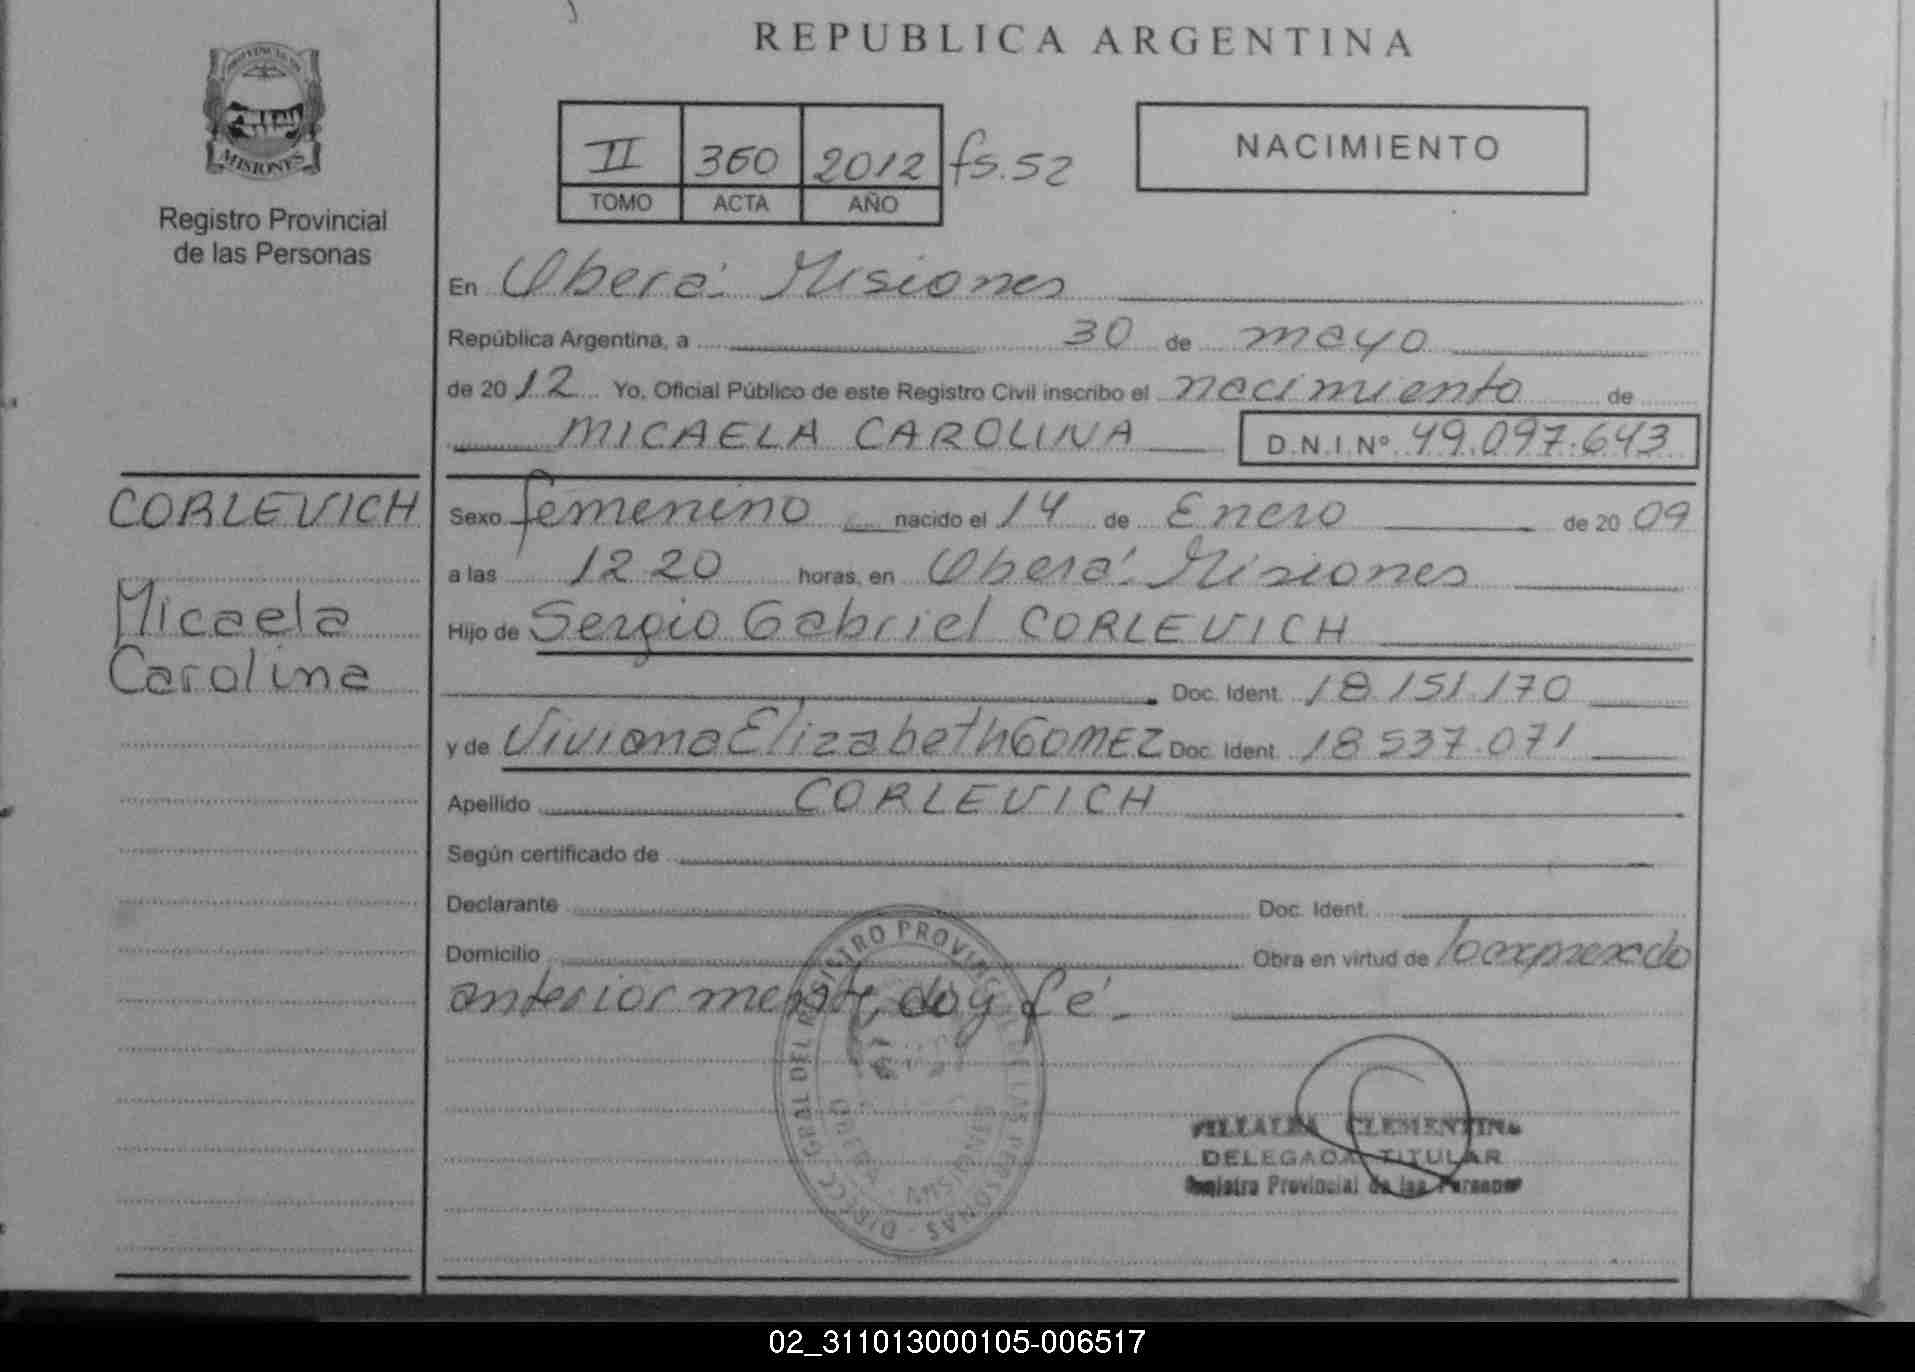 REPUBLICA ARGENTINA
PROVINCIA DE
MISIONES
Registro Provincial
de las Personas
II 360 2012 fs.52
TOMO ACTA AÑO
NACIMIENTO
En Oberá Misiones
República Argentina, a 30 de mayo
de 2012 Yo, Oficial Público de este Registro Civil inscribo el nacimiento de
MICAELA CAROLINA D.N.I.Nº 49.097.643
CORLEVICH
Micaela
Carolina
Sexo femenino nacido el 14 de Enero de 2009
a las 12 20 horas, en Oberá Misiones
Hijo de Sergio Gabriel CORLEVICH
Doc. Ident. 18.151.170
y de Viviana Elizabeth GOMEZ Doc. Ident. 18.537.071
Apellido CORLEVICH
Según certificado de
Declarante Doc. Ident.
Domicilio Obra en virtud de lo expresado
anteriormente, doy fé.
DIRECC. GRAL. DEL REGISTRO PROVINCIAL DE LAS PERSONAS
OBERÁ
MISIONES
VILLALBA CLEMENTINA
DELEGADA TITULAR
Registro Provincial de las Personas
02_311013000105-006517